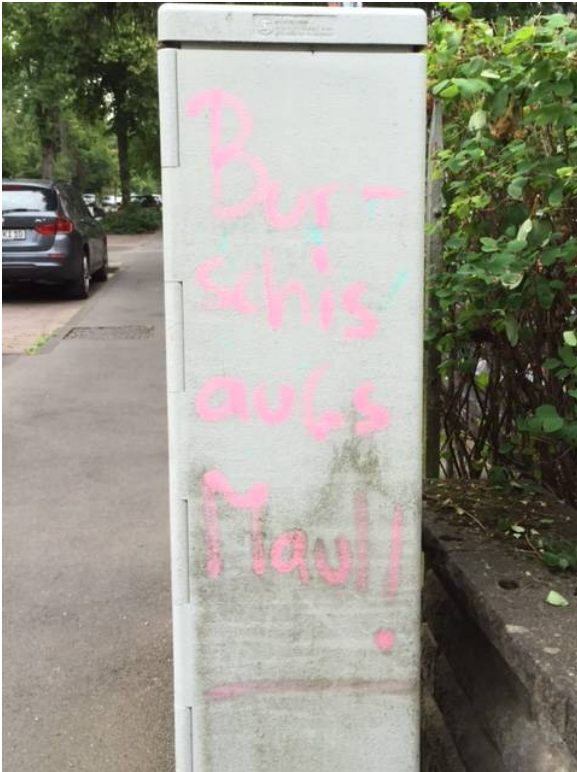 Bur-
schis
aufs
Maul!